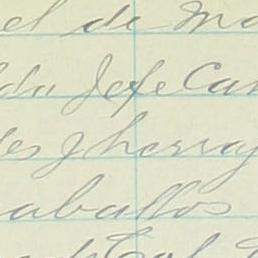 el de Ma
lda Jefe Can
les y herraj
aballos